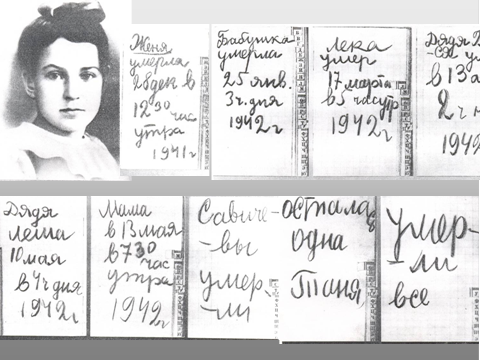 Женя
умерла
28 дек в
12 30 час
утра
1941 г
Бабушка
умерла
25 янв.
3 ч. дня
1942 г
Лека
умер
17 марта
в 5 час утр
1942 г
Дядя
в 13 а
2 ч н
1942
Дядя
Леша
10 мая
в 4 ч дня
1942 г
Мама
в 13 мая
в 7 30
час
утра
1942 г
Савиче-
-вы
умер-
-ли
осталась
одна
Таня
умер-
-ли
все